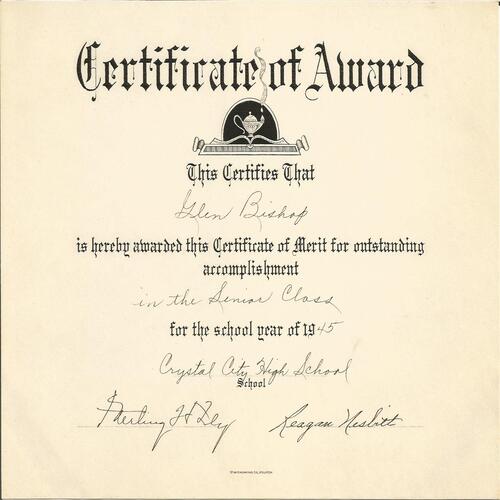 Certificate of Award
This Certifies That
Glen Bishop
is hereby awarded this Certificate of Merit for outstanding
accomplishment
in the Senior Class
for the school year of 1945
Crystal City High School
School
Sterling H Fly Reagan Nesbitt